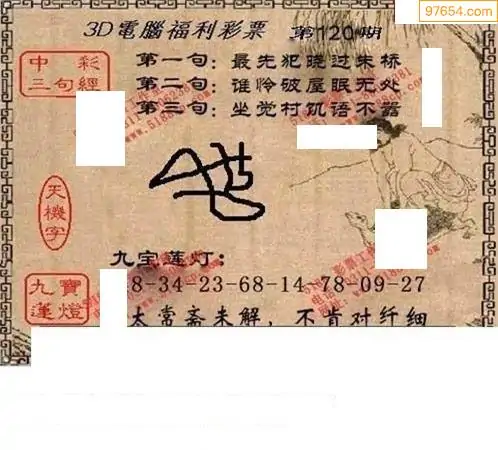 97654.com
3D電腦福利彩票 第120期
中彩
三句經
第一句：最先犯晓过朱桥
第二句：谁怜破屋眠无处
第三句：坐觉村饥语不嚣
天機字
九宝莲灯：
8-34-23-68-14-78-09-27
九寶
蓮燈
太常斋未解，不肯对纤细